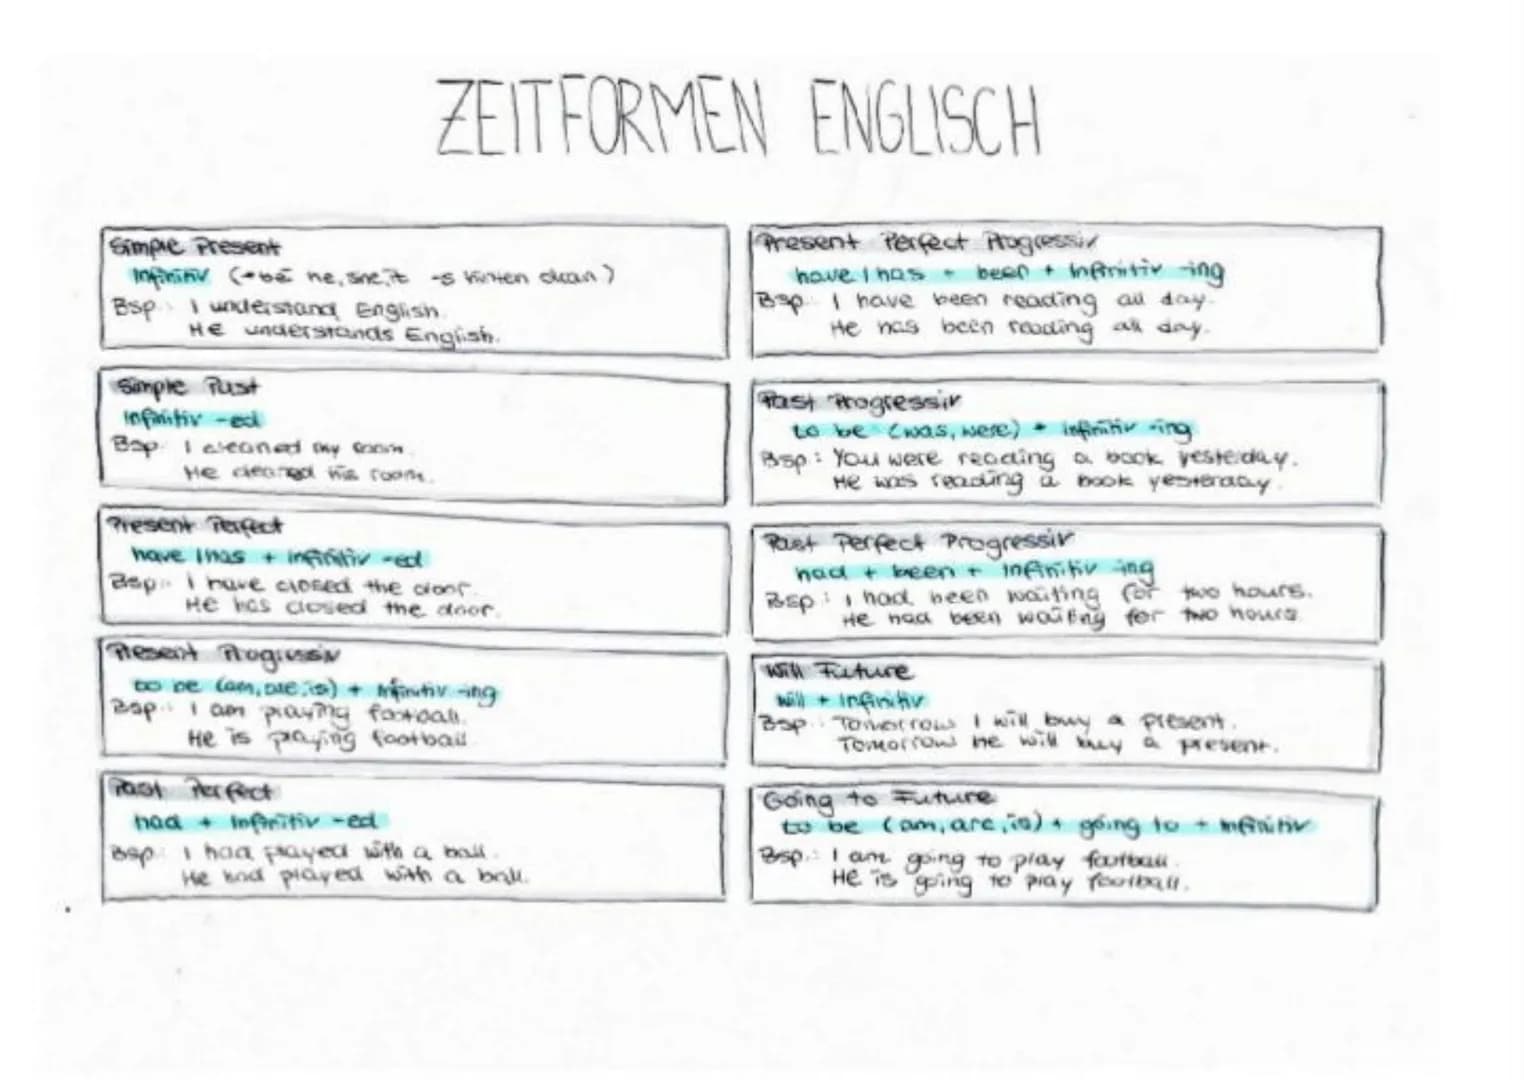 ZEITFORMEN ENGLISCH
Simple Present
Infinitiv (→ bei he, she, it -s hinten dran)
Bsp.: I understand English.
He understands English.
Simple Past
Infinitiv -ed
Bsp.: I cleaned my room.
He cleaned his room.
Present Perfect
have / has + Infinitiv -ed
Bsp.: I have closed the door.
He has closed the door.
Present Progressiv
to be (am, are, is) + Infinitiv -ing
Bsp.: I am playing football.
He is playing football.
Past Perfect
had + Infinitiv -ed
Bsp.: I had played with a ball.
He had played with a ball.
Present Perfect Progressiv
have / has + been + Infinitiv -ing
Bsp.: I have been reading all day.
He has been reading all day.
Past Progressiv
to be (was, were) + Infinitiv -ing
Bsp.: You were reading a book yesterday.
He was reading a book yesterday.
Past Perfect Progressiv
had + been + Infinitiv -ing
Bsp.: I had been waiting for two hours.
He had been waiting for two hours
Will Future
will + Infinitiv
Bsp.: Tomorrow I will buy a present.
Tomorrow he will buy a present.
Going to Future
to be (am, are, is) + going to + Infinitiv
Bsp.: I am going to play football.
He is going to play football.